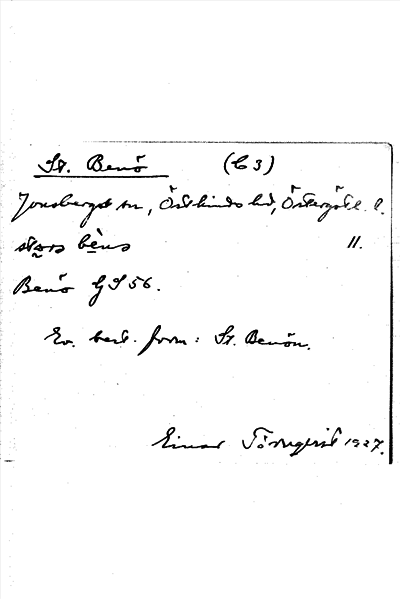 St. Benö (C 3)
Jonsbergs sn, Östkinds hd, Östergötl. l.
stọrɔ bèna 11.
Benö GS 56.
Ev. best. form: St. Benön.
Einar Törnqvist 1927.